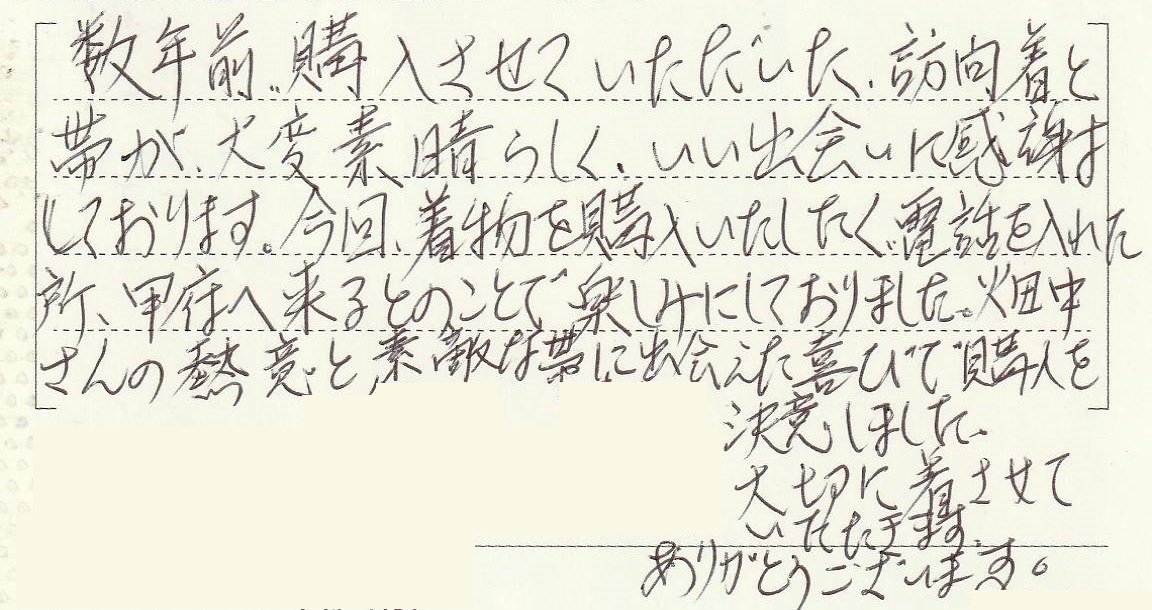 数年前、購入させていただいた、訪問着と
帯が、大変素晴らしく、いい出会いに感謝
しております。今回、着物を購入いたしたく、電話を入れた
所、甲府へ来るとのことで楽しみにしておりました。畑中
さんの熱意と、素敵な帯に出会えた喜びで購入を
決意しました。
大切に着させて
いただきます。
ありがとうございます。